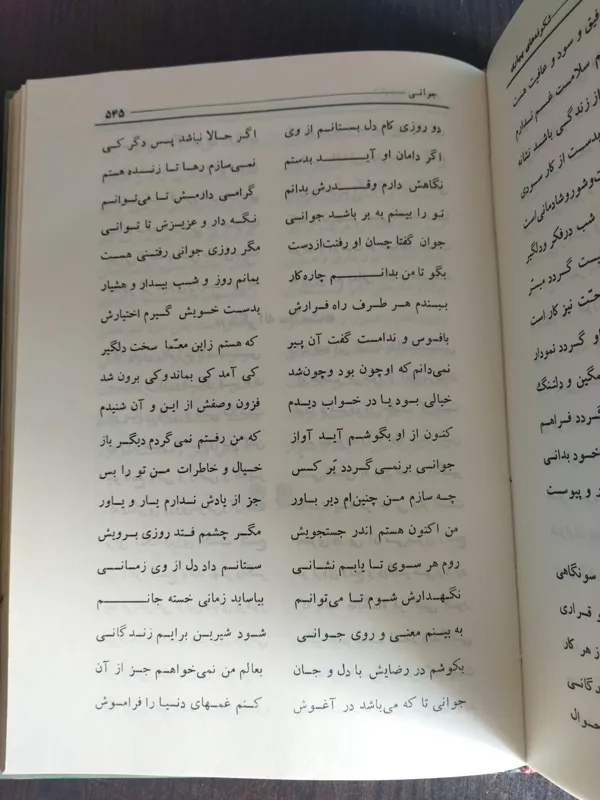 جوانی
۵۴۵
دو روزی کام دل بستانم از وی اگر حالا نباشد پس دگر کی
اگر دامان او آید بدستم نمی‌سازم رها تا زنده هستم
نگاهش دارم وقدرش بدانم گرامی دارمش تا می‌توانم
تو را بینم به بر باشد جوانی نگه دار و عزیزش تا توانی
جوان گفتا چسان او رفنت‌ازدست مگر روزی جوانی رفتنی هست
بگو تا من بدانم چاره‌کار بمانم روز و شب بیدار و هشیار
ببندم هر طرف راه فرارش بدست خویش گیرم اختیارش
بافسوس و ندامت گفت آن پیر که هستم زاین معمّا سخت دلگیر
نمی‌دانم که اوچون بود وچون‌شد کی آمد کی بماندوکی برون شد
خیالی بود یا در خواب دیدم فزون وصفش از این و آن شنیدم
کنون از او بگوشم آید آواز که من رفتم نمی‌گردم دیگر باز
جوانی برنمی‌گردد بّر کس خیال و خاطرات من تو را بس
چه سازم من چنین‌ام دیر باور جز از یادش ندارم یار و یاور
من اکنون هستم اندر جستجویش مگر چشمم فتد روزی برویش
روم هر سوی تا یابم نشانی ستانم داد دل از وی زمانی
نگهدارش شوم تا می‌توانم بیاساید زمانی خسته جانم
به بینم معنی و روی جوانی شود شیرین برایم زندگانی
بکوشم در رضایش با دل و جان بعالم من نمی‌خواهم جز از آن
جوانی تا که می‌باشد در آغوش کنم غمهای دنیا را فراموش
فیق و سود و عافیت هست
سلامست غم ندارم
از زندگی باشد نشانه
بدست از کار سردی
شب درفکر ودلگیر
گردد میسّر
نیز کار است
او گردد نمودار
غمگین و دلتنگ
گردد فراهم
خود بدانی
و پیوست
سونگاهی
و قراری
از هر کار